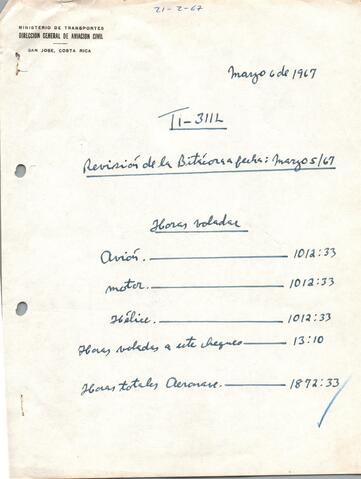 21-2-67
MINISTERIO DE TRANSPORTES
DIRECCION GENERAL DE AVIACION CIVIL
SAN JOSE, COSTA RICA
Marzo 6 de 1967
TI-311L
Revisión de la Bitácora a fecha: Marzo 5/67
Horas voladas
Avión. 1012:33
motor. 1012:33
Hélice. 1012:33
Horas voladas a este chequeo 13:10
Horas totales Aeronave. 1872:33